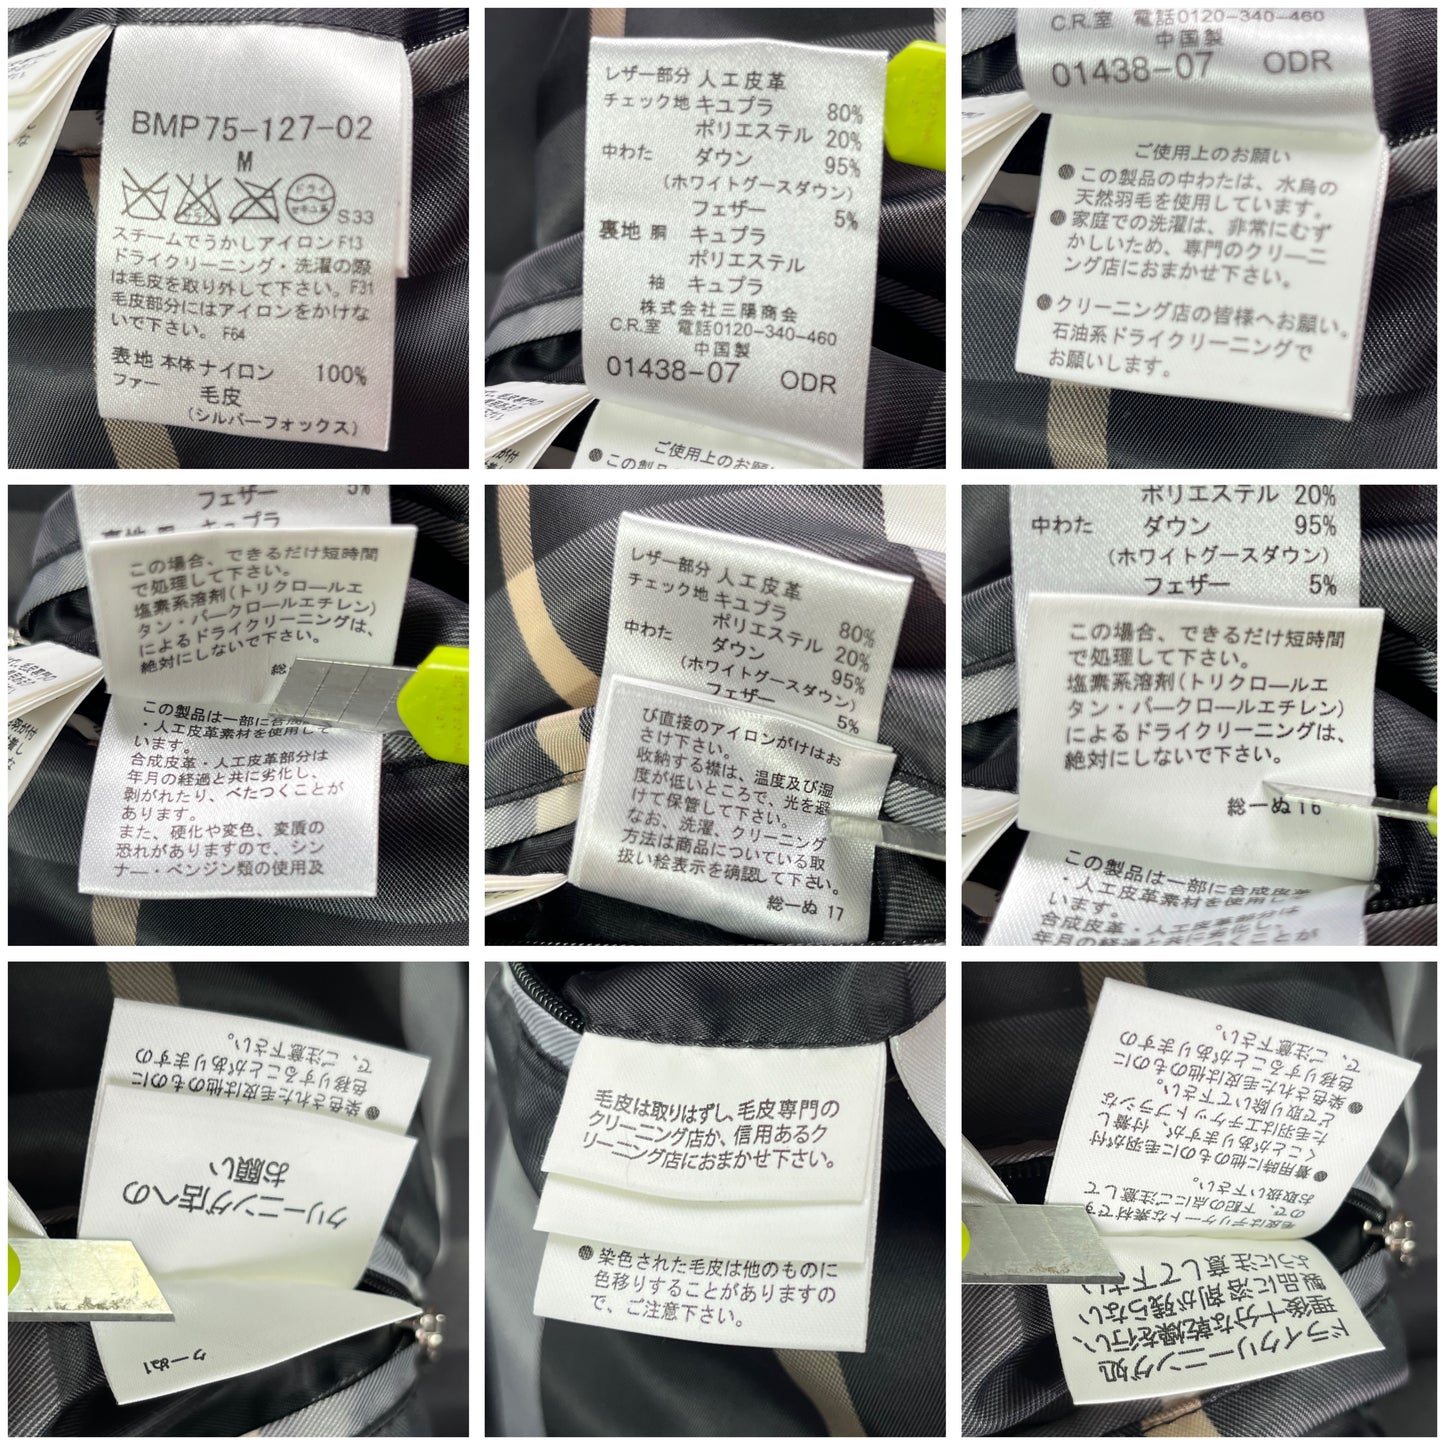 BMP75-127-02
M
ドライ
セキユ系
S33
スチームでうかしアイロンF13
ドライクリーニング・洗濯の際
は毛皮を取り外して下さい。F31
毛皮部分にはアイロンをかけな
いで下さい。F64
表地 本体 ナイロン 100%
ファー 毛皮
(シルバーフォックス)
レザー部分 人工皮革
チェック地 キュプラ 80%
ポリエステル 20%
中わた ダウン 95%
(ホワイトグースダウン)
フェザー 5%
裏地 胴 キュプラ
ポリエステル
袖 キュプラ
株式会社三陽商会
C.R.室 電話0120-340-460
中国製
01438-07 ODR
ご使用上のお願い
C.R.室 電話0120-340-460
中国製
01438-07 ODR
ご使用上のお願い
●この製品の中わたは、水鳥の
天然羽毛を使用しています。
●家庭での洗濯は、非常にむず
かしいため、専門のクリーニ
ング店におまかせ下さい。
●クリーニング店の皆様へお願い。
石油系ドライクリーニングで
お願いします。
フェザー 5%
裏地 胴 キュプラ
この場合、できるだけ短時間
で処理して下さい。
塩素系溶剤(トリクロールエ
タン・パークロールエチレン)
によるドライクリーニングは、
絶対にしないで下さい。
総
この製品は一部に合成皮革
・人工皮革素材を使用して
います。
合成皮革・人工皮革部分は
年月の経過と共に劣化し、
剥がれたり、べたつくことが
あります。
また、硬化や変色、変質の
恐れがありますので、シン
ナー・ベンジン類の使用及
レザー部分 人工皮革
チェック地 キュプラ 80%
ポリエステル 20%
中わた ダウン 95%
(ホワイトグースダウン)
フェザー 5%
び直接のアイロンがけはお
さけ下さい。
収納する襟は、温度及び湿
度が低いところで、光を避
けて保管して下さい。
なお、洗濯、クリーニング
方法は商品についている取
扱い絵表示を確認して下さい。
総一ぬ 17
ポリエステル 20%
中わた ダウン 95%
(ホワイトグースダウン)
フェザー 5%
この場合、できるだけ短時間
で処理して下さい。
塩素系溶剤(トリクロールエ
タン・パークロールエチレン)
によるドライクリーニングは、
絶対にしないで下さい。
総一ぬ 16
この製品は一部に合成皮革
・人工皮革素材を使用して
います。
合成皮革・人工皮革部分は
年月の経過と共に劣化し、
剥がれたり、べたつくことが
●染色された毛皮は他のものに
色移りすることがありますの
で、ご注意下さい。
クリーニング店への
お願い
クーぬ1
毛皮は取りはずし、毛皮専門の
クリーニング店か、信用あるク
リーニング店におまかせ下さい。
●染色された毛皮は他のものに
色移りすることがありますの
で、ご注意下さい。
毛皮はデリケートな素材です
ので、下記の点にご注意して
お取扱い下さい。
●着用時に他のものに毛羽が付
くことがありますが、付着し
た毛羽はエチケットブラシな
どで取り除いて下さい。
●染色された毛皮は他のものに
色移りすることがありますの
で、ご注意下さい。
ドライクリーニング処
理後十分な乾燥を行い、
製品に溶剤が残らない
ように注意して下さい